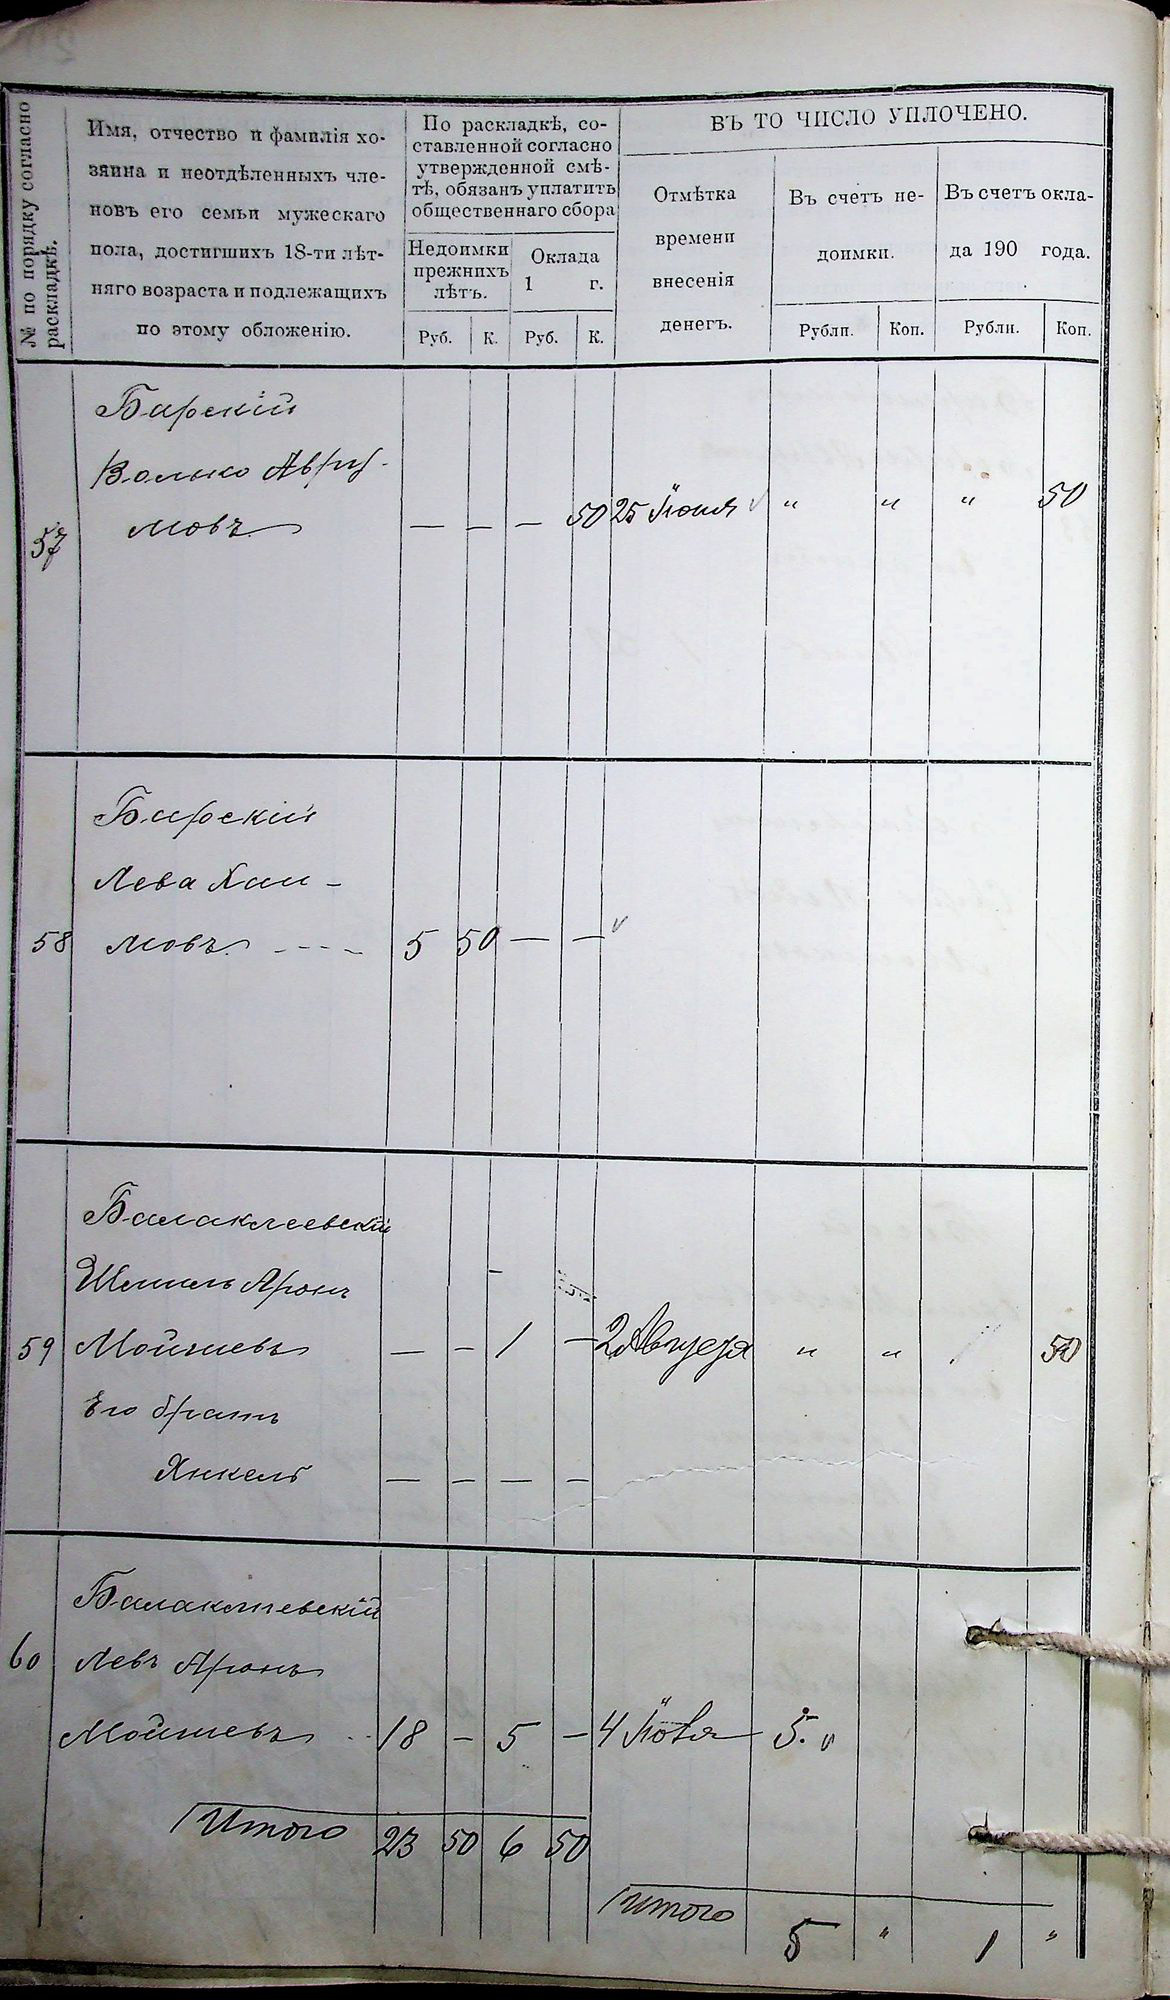 № по порядку согласно раскладкѣ.
Имя, отчество и фамилія хо-
зяина и неотдѣленныхъ чле-
новъ его семьи мужескаго
пола, достигшихъ 18-ти лѣт-
няго возраста и подлежащихъ
по этому обложенію.
По раскладкѣ, со-
ставленной согласно
утвержденной смѣ-
тѣ, обязанъ уплатить
общественнаго сбора
Недоимки
прежнихъ
лѣтъ.
Оклада
1 г.
Руб. К. Руб. К.
ВЪ ТО ЧИСЛО УПЛОЧЕНО.
Отмѣтка
времени
внесенія
денегъ.
Въ счетъ не-
доимки.
Въ счетъ окла-
да 190 года.
Рубли. Коп. Рубли. Коп.
Барскій
Волько Авру-
57 мовъ — — — 50 25 Іюня " " " 50
Барскій
Лева Хаи-
58 мовъ. - - - - 5 50 — —
Балаклеевскій
Шмиль Аронъ
59 Мойшевъ — — 1 — 2 Августа " " 50
Его братъ
Янкель — — — —
Балаклиевскій
60 Левъ Аронъ
Мойшевъ 18 — 5 — 4 5.
Итого 23 50 6 50
Итого 5 " 1 "